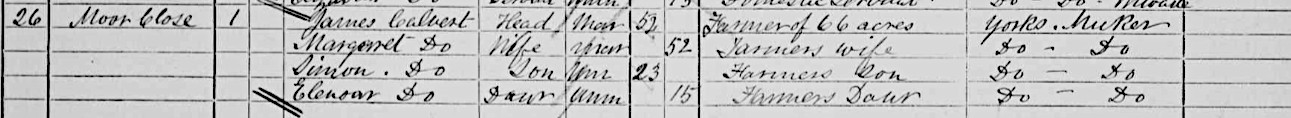 26 Moor Close 1 James Calvert Head Mar 52 Farmer of 66 acres Yorks. Muker
Margaret Do Wife Mar 52 Farmers wife Do - Do
Simon. Do Son Unm 23 Farmers Son Do - Do
Elenoar Do Daur Unm 15 Farmers Daur Do - Do